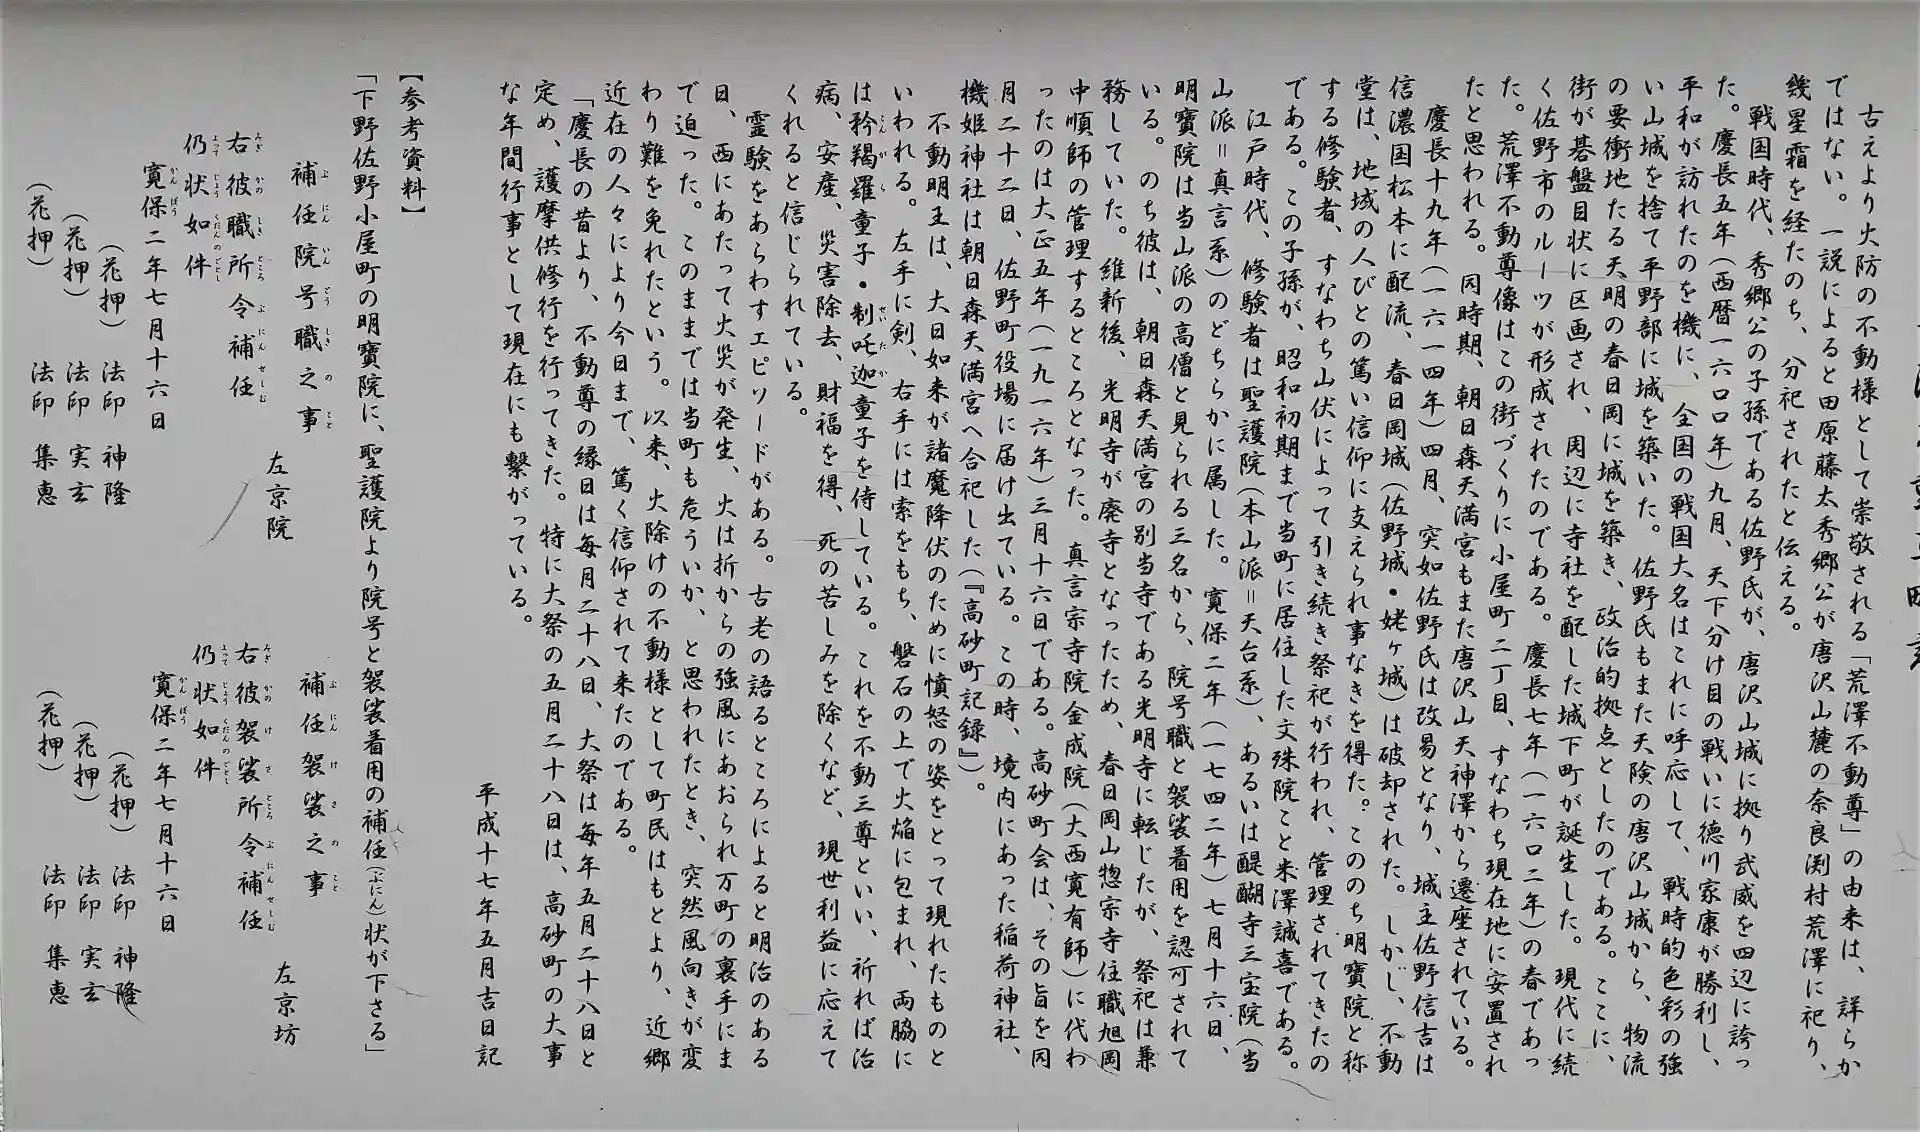 古えより火防の不動様として崇敬される「荒澤不動尊」の由来は、詳らか
ではない。一説によると田原藤太秀郷公が唐沢山麓の奈良渕村荒澤に祀り、
幾星霜を経たのち、分祀されたと伝える。
戦国時代、秀郷公の子孫である佐野氏が、唐沢山城に拠り武威を四辺に誇っ
た。慶長五年（西暦一六〇〇年）九月、天下分け目の戦いに徳川家康が勝利し、
平和が訪れたのを機に、全国の戦国大名はこれに呼応して、戦時的色彩の強
い山城を捨て平野部に城を築いた。佐野氏もまた天険の唐沢山城から、物流
の要衝地たる天明の春日岡に城を築き、政治的拠点としたのである。ここに、
街が碁盤目状に区画され、周辺に寺社を配した城下町が誕生した。現代に続
く佐野市のルーツが形成されたのである。慶長七年（一六〇二年）の春であっ
た。荒澤不動尊像はこの街づくりに小屋町二丁目、すなわち現在地に安置され
たと思われる。同時期、朝日森天満宮もまた唐沢山天神澤から遷座されている。
慶長十九年（一六一四年）四月、突如佐野氏は改易となり、城主佐野信吉は
信濃国松本に配流、春日岡城（佐野城・姥ヶ城）は破却された。しかし、不動
堂は、地域の人びとの篤い信仰に支えられ事なきを得た。こののち明寶院と称
する修験者、すなわち山伏によって引き続き祭祀が行われ、管理されてきたの
である。この子孫が、昭和初期まで当町に居住した文殊院こと米澤誠喜である。
江戸時代、修験者は聖護院（本山派＝天台系）、あるいは醍醐寺三宝院（当
山派＝真言系）のどちらかに属した。寛保二年（一七四二年）七月十六日、
明寶院は当山派の高僧と見られる三名から、院号職と袈裟着用を認可されて
いる。のち彼は、朝日森天満宮の別当寺である光明寺に転じたが、祭祀は兼
務していた。維新後、光明寺が廃寺となったため、春日岡山惣宗寺住職旭岡
中順師の管理するところとなった。真言宗寺院金成院（大西寛有師）に代わ
ったのは大正五年（一九一六年）三月十六日である。高砂町会は、その旨を同
月二十二日、佐野町役場に届け出ている。この時、境内にあった稲荷神社、
機姫神社は朝日森天満宮へ合祀した（『高砂町記録』）。
不動明王は、大日如来が諸魔降伏のために憤怒の姿をとって現れたものと
いわれる。左手に剣、右手には索をもち、磐石の上で火焔に包まれ、両脇に
は矜羯羅童子・制吒迦童子を侍している。これを不動三尊といい、祈れば治
病、安産、災害除去、財福を得、死の苦しみを除くなど、現世利益に応えて
くれると信じられている。
霊験をあらわすエピソードがある。古老の語るところによると明治のある
日、西にあたって火災が発生、火は折からの強風にあおられ万町の裏手にま
で迫った。このままでは当町も危ういか、と思われたとき、突然風向きが変
わり難を免れたという。以来、火除けの不動様として町民はもとより、近郷
近在の人々により今日まで、篤く信仰されて来たのである。
「慶長の昔より、不動尊の縁日は毎月二十八日、大祭は毎年五月二十八日と
定め、護摩供修行を行ってきた。特に大祭の五月二十八日は、高砂町の大事
な年間行事として現在にも繋がっている。
平成十七年五月吉日記
【参考資料】
「下野佐野小屋町の明寶院に、聖護院より院号と袈裟着用の補任（ぶにん）状が下さる」
補任院号職之事
左京院
右彼職所令補任
仍状如件
寛保二年七月十六日
（花押） 法印 神隆
（花押） 法印 実玄
（花押） 法印 集恵
補任袈裟之事
左京坊
右彼袈裟所令補任
仍状如件
寛保二年七月十六日
（花押） 法印 神隆
（花押） 法印 実玄
（花押） 法印 集恵